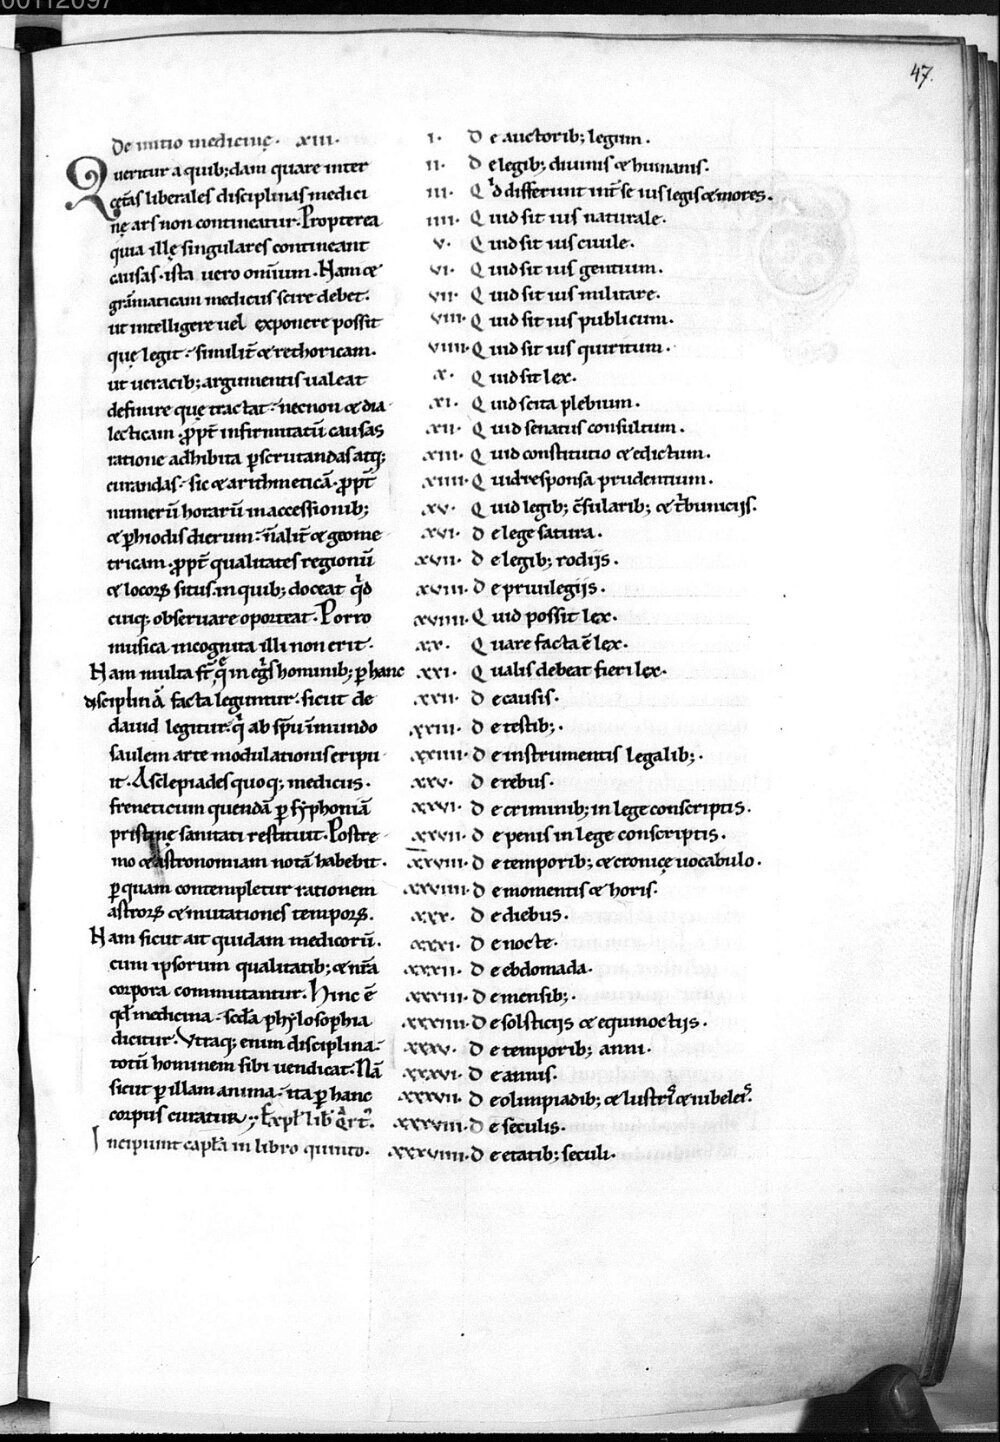 00112097
47.
De initio medicinę. xiii.
Queritur a quib; dam quare inter
cetas liberales disciplinas medici
nę ars non contineatur. Propterea
quia illę singulares contineant
causas. ista uero omnium. Nam &
gramaticam medicus scire debet.
ut intelligere uel exponere possit
quę legit. similit̄ & rethoricam.
ut ueracib; argumentis ualeat
definire quę tractat. necnon & dia
lecticam. ꝓpt̄ infirmitatū causas
ratione adhibita ꝑscrutandas atq;
curandas. sic & arithmeticā. ꝓpt̄
numerū horarū in accessionib;
& ꝑhiodis dierum. n̄ alit̄ & geome
tricam. ꝓpt̄ qualitates regionū
& locoꝝ situs. in quib; doceat qd
cuiq; obseruare oporteat. Porro
musica incognita illi non erit.
Nam multa st̄ q̄ in egris hominib; ꝑ hanc
disciplinā facta leguntur. sicut de
dauid legitur. qi ab spū īmundo
saulem arte modulationis eripu
it. Asclepiades quoq; medicus.
freneticum quendā ꝑ syphoniā
pristinę sanitati restituit. Postre
mo & astronomiam notā habebit.
ꝑ quam contempletur rationem
astroꝝ & mutationes tempoꝝ.
Nam sicut ait quidam medicorū.
cum ipsorum qualitatib; & nr̄a
corpora commutantur. Hinc ē
qd medicina. scda phylosophia
dicitur. Vtraq; enim disciplina.
totū hominem sibi uendicat. Nā
sicut ꝑ illam anima. ita ꝑ hanc
corpus curatur. Expl lib qrt.
Incipiunt capl̄a in libro quinto.
i. De auctorib; legum.
ii. De legib; diuinis & humanis.
iii. Qid differunt int̄ se ius leges & mores.
iiii. Quid sit ius naturale.
v. Quid sit ius ciuile.
vi. Quid sit ius gentium.
vii. Quid sit ius militare.
viii. Quid sit ius publicum.
viiii. Quid sit ius quiritum.
x. Quid sit lex.
xi. Quid scita plebium.
xii. Quid senatus consultum.
xiii. Quid constitutio & edictum.
xiiii. Quid responsa prudentium.
xv. Quid legib; c̄sularib; & tbunicijs.
xvi. De lege satura.
xvii. De legib; rodijs.
xviii. De priuilegijs.
xviiii. Quid possit lex.
xx. Quare facta ē lex.
xxi. Qualis debeat fieri lex.
xxii. De causis.
xxiii. De testib;.
xxiiii. De instrumentis legalib;.
xxv. De rebus.
xxvi. De criminib; in lege conscriptis.
xxvii. De penis in lege conscriptis.
xxviii. De temporib; & cronicę uocabulo.
xxviiii. De momentis & horis.
xxx. De diebus.
xxxi. De nocte.
xxxii. De ebdomada.
xxxiii. De mensib;.
xxxiiii. De solsticijs & equinoctijs.
xxxv. De temporib; anni.
xxxvi. De annis.
xxxvii. De olimpiadib; & lustris & iubeleis.
xxxviii. De seculis.
xxxviiii. De etatib; seculi.